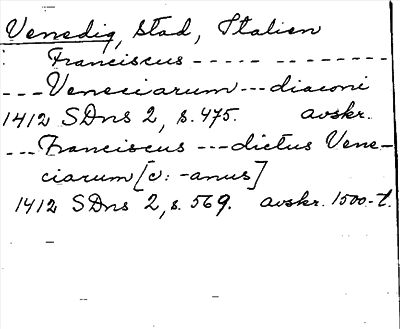 Venedig, stad, Italien
Franciscus ----- --------
---Veneciarum---diaconi
1412 SDns 2, s. 475. avskr.
---Franciscus ---dictus Vene-
ciarum [c: -anus]
1412 SDns 2, s. 569. avskr. 1500-t.